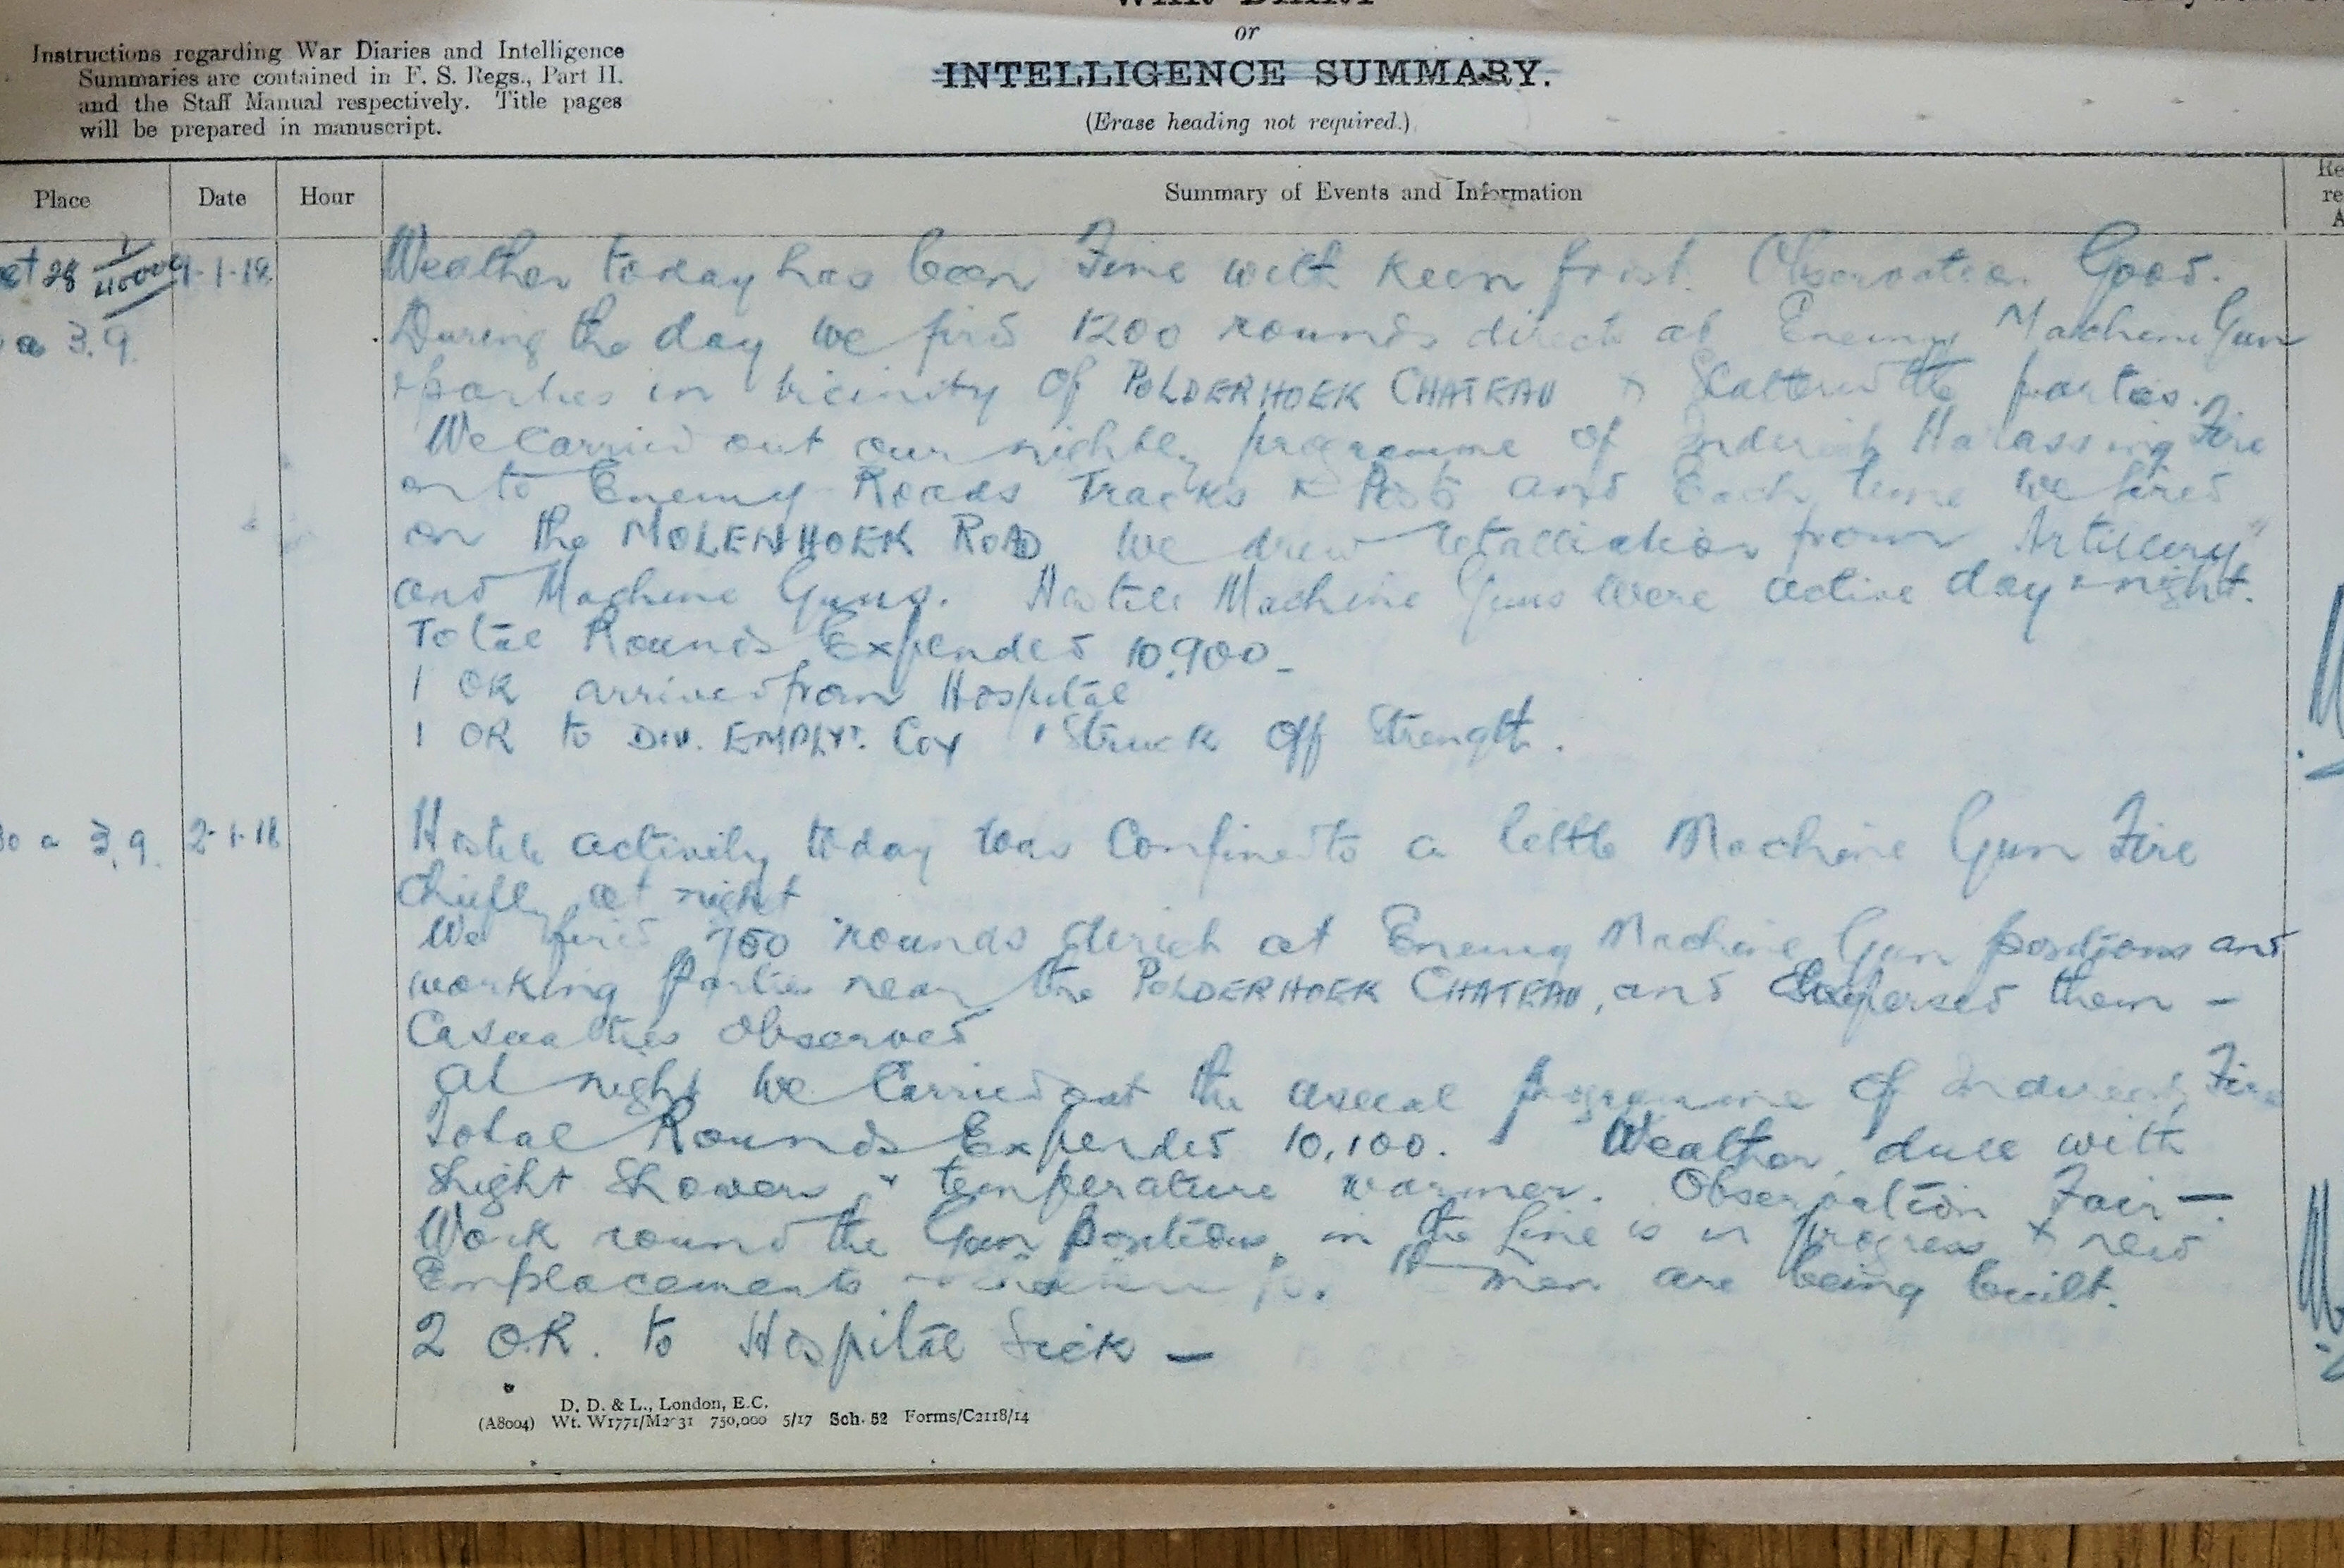 or
Instructions regarding War Diaries and Intelligence
Summaries are contained in F. S. Regs., Part II.
and the Staff Manual respectively. Title pages
will be prepared in manuscript.
INTELLIGENCE SUMMARY.
(Erase heading not required.)
Place Date Hour Summary of Events and Information
28 1/40000 1-1-18 Weather today has been Fine with keen frost. Observation Good.
a 3.9. During the day we fired 1200 rounds direct at Enemy Machine Gun
& parties in vicinity of POLDERHOEK CHATEAU & Scattered the parties.
We carried out our nightly programme of Indirect Harassing Fire
on to Enemy Roads Tracks & Posts and Each time we fired
on the MOLENHOEK ROAD we drew retaliation from Artillery
and Machine Guns. Hostile Machine Guns were active day & night.
Total Rounds Expended 10,900 -
1 OR arrived from Hospital
1 OR to DIV. EMPLYT. COY & Struck Off Strength.
a 3.9. 2-1-18 Hostile activity today was Confined to a little Machine Gun Fire
Chiefly at night
We fired 750 rounds direct at Enemy Machine Gun positions and
working parties near the POLDERHOEK CHATEAU, and dispersed them -
Casualties Observed
At night we Carried out the usual programme of Indirect Fire
Total Rounds Expended 10,100. Weather dull with
slight Showers & temperature warmer. Observation Fair -
Work round the Gun positions in the Line is in progress & new
Emplacements men are being built.
2 O.R. to Hospital Sick -
D. D. & L., London, E.C.
(A8004) Wt. W1771/M2 31 750,000 5/17 Sch. 52 Forms/C2118/14